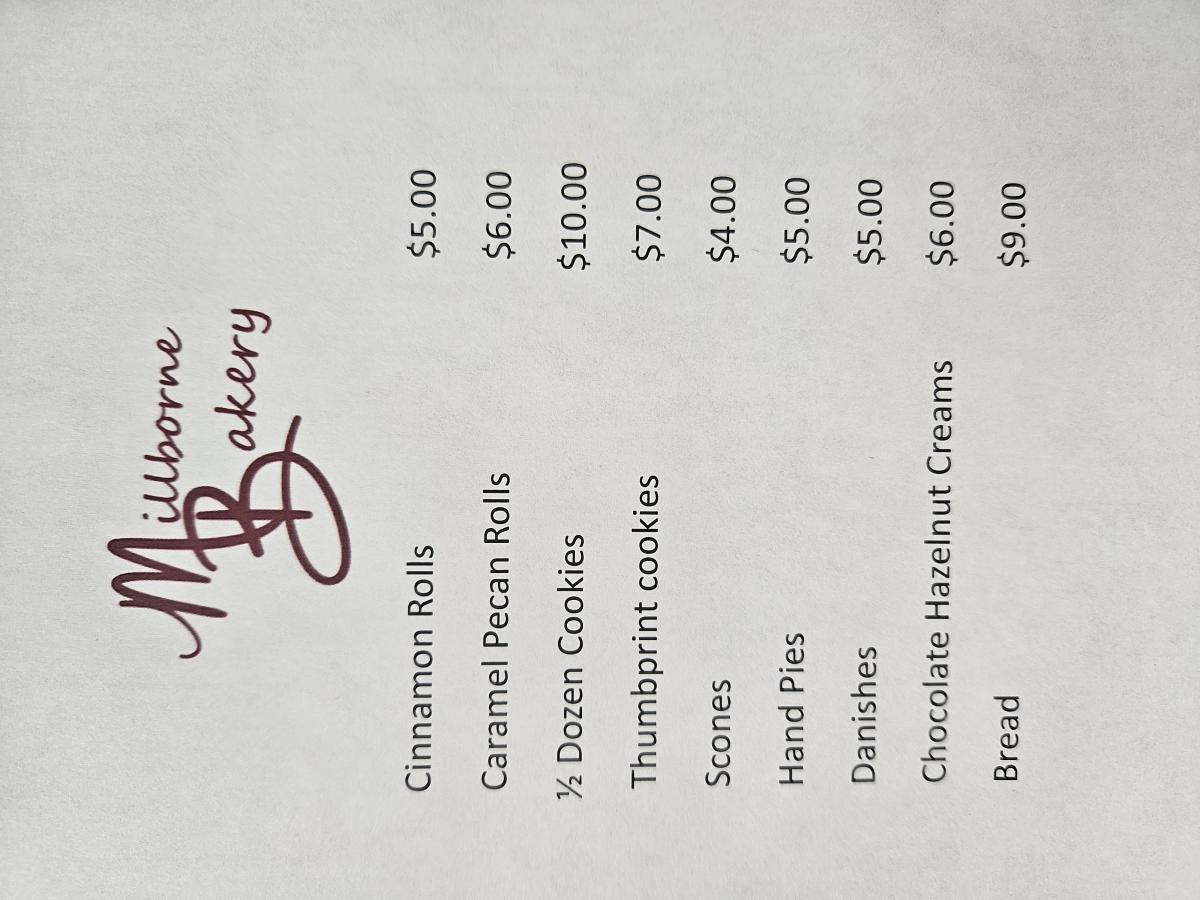 Millborne
Bakery
Cinnamon Rolls $5.00
Caramel Pecan Rolls $6.00
½ Dozen Cookies $10.00
Thumbprint cookies $7.00
Scones $4.00
Hand Pies $5.00
Danishes $5.00
Chocolate Hazelnut Creams $6.00
Bread $9.00